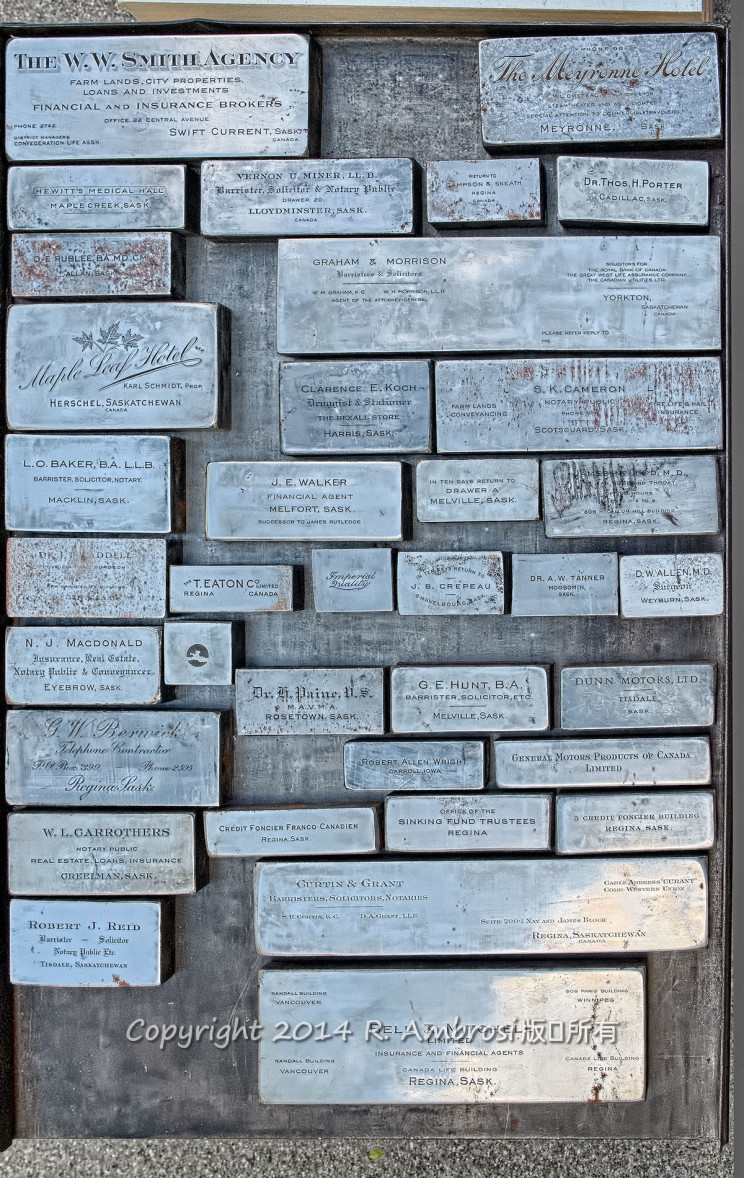 THE W.W. SMITH AGENCY
FARM LANDS, CITY PROPERTIES,
LOANS AND INVESTMENTS
FINANCIAL AND INSURANCE BROKERS
OFFICE 22 CENTRAL AVENUE
PHONE 2742
SWIFT CURRENT, SASK.
CANADA
DISTRICT MANAGERS
CONFEDERATION LIFE ASSN.
The Meyronne Hotel
SPECIAL ATTENTION TO COMMERCIAL TRAVELERS
MEYRONNE, SASK.
HEWITT'S MEDICAL HALL
MAPLE CREEK, SASK.
VERNON U. MINER, LL.B.
Barrister, Solicitor & Notary Public
DRAWER 20.
LLOYDMINSTER, SASK.
CANADA
RETURN TO
SAMPSON & SNEATH
REGINA
CANADA
DR. THOS. H. PORTER
CADILLAC, SASK.
D. E. RUBLEE, BA. MD. CM.
ALLAN, SASK.
GRAHAM & MORRISON
Barristers & Solicitors
W. M. GRAHAM, K.C. W. H. MORRISON, LL.B.
AGENT OF THE ATTORNEY-GENERAL
SOLICITORS FOR
THE ROYAL BANK OF CANADA
THE GREAT WEST LIFE ASSURANCE COMPANY
THE CANADIAN UTILITIES LTD.
YORKTON,
SASKATCHEWAN
CANADA
PLEASE REFER REPLY TO
MR.
Maple Leaf Hotel
KARL SCHMIDT, PROP.
HERSCHEL, SASKATCHEWAN
CANADA
CLARENCE E. KOCH
Druggist & Stationer
THE REXALL STORE
HARRIS, SASK.
S. K. CAMERON
NOTARY PUBLIC
FARM LANDS
CONVEYANCING
FIRE LIFE & HAIL
INSURANCE
SCOTSGUARD, SASK.
L. O. BAKER, B.A. L.L.B.
BARRISTER, SOLICITOR, NOTARY.
MACKLIN, SASK.
J. E. WALKER
FINANCIAL AGENT
MELFORT, SASK.
SUCCESSOR TO JAMES RUTLEDGE
IN TEN DAYS RETURN TO
DRAWER A
MELVILLE, SASK.
M.D.,
THROAT
HOURS
BUILDING
REGINA, SASK.
THE T. EATON CO LIMITED
REGINA CANADA
Imperial
Quality
IN TEN DAYS RETURN TO
J. B. CREPEAU
GRAVELBOURG, SASK.
DR. A. W. TANNER
MOOSOMIN,
SASK.
D. W. ALLEN, M.D.
Surgeon
WEYBURN, SASK.
N. J. MACDONALD
Insurance, Real Estate,
Notary Public & Conveyancer,
EYEBROW, SASK.
Dr. H. Paine, V.S.
M.A.V.M.A
ROSETOWN, SASK.
G. E. HUNT, B.A.
BARRISTER, SOLICITOR, ETC.
MELVILLE, SASK
DUNN MOTORS, LTD.
TISDALE,
SASK.
G. W. Berwick
Telephone Contractor
P.O. Box 1299 Phone 2595
Regina, Sask.
ROBERT ALLEN WRIGHT
CARROLL, IOWA
GENERAL MOTORS PRODUCTS OF CANADA
LIMITED
W. L. CARROTHERS
NOTARY PUBLIC
REAL ESTATE, LOANS, INSURANCE
CREELMAN, SASK.
CRÉDIT FONCIER FRANCO-CANADIEN
REGINA, SASK.
OFFICE OF THE
SINKING FUND TRUSTEES
REGINA
5 CREDIT FONCIER BUILDING
REGINA, SASK.
CURTIN & GRANT
BARRISTERS, SOLICITORS, NOTARIES
S. R. CURTIN, K.C. D. A. GRANT, LL.B.
CABLE ADDRESS "CURANT"
CODE: WESTERN UNION
SUITE 200-4 NAY AND JAMES BLOCK
REGINA, SASKATCHEWAN
CANADA
ROBERT J. REID
Barrister — Solicitor
Notary Public Etc
TISDALE, SASKATCHEWAN
RANDALL BUILDING
VANCOUVER
PARIS BUILDING
WINNIPEG
MITCHELL
LIMITED
INSURANCE AND FINANCIAL AGENTS
RANDALL BUILDING
VANCOUVER
CANADA LIFE BUILDING
REGINA, SASK.
CANADA LIFE BUILDING
REGINA
Copyright 2014 R. Ambrosi版所有